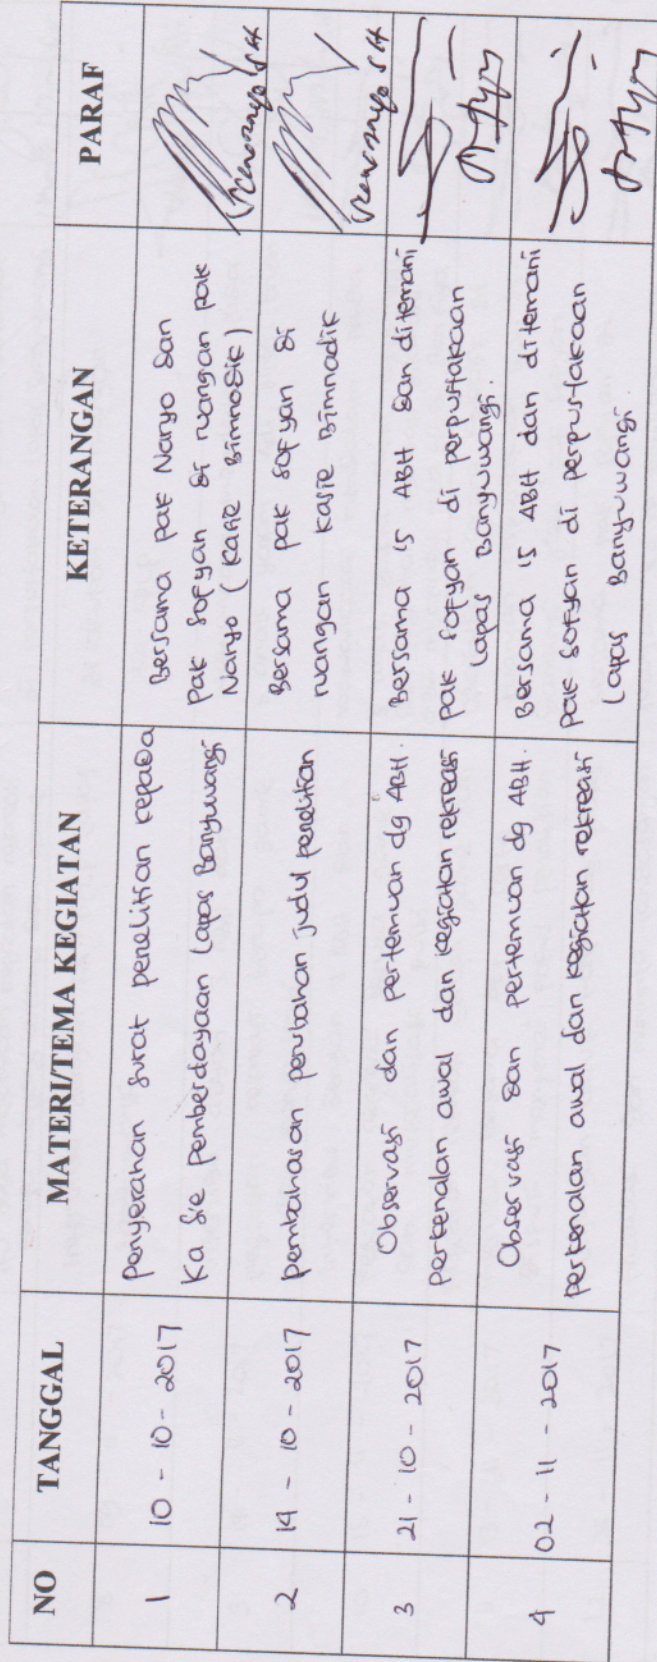 NO TANGGAL MATERI/TEMA KEGIATAN KETERANGAN PARAF
1 10 - 10 - 2017
Penyerahan surat penelitian kepada
Ka Sie pemberdayaan Lapas Banyuwangi
Bersama pak Naryo dan
pak Sofyan di ruangan pak
Naryo (Kasie Bimnadik)
2 19 - 10 - 2017
pembahasan perubahan judul penelitian
Bersama pak Sofyan di
ruangan kasie Bimnadik
3 21 - 10 - 2017
Observasi dan pertemuan dg ABH.
perkenalan awal dan kegiatan rekreasi
Bersama 15 ABH dan ditemani
pak Sofyan di perpustakaan
Lapas Banyuwangi.
4 02 - 11 - 2017
Observasi dan pertemuan dg ABH.
perkenalan awal dan kegiatan rekreasi
Bersama 15 ABH dan ditemani
pak Sofyan di perpustakaan
Lapas Banyuwangi.